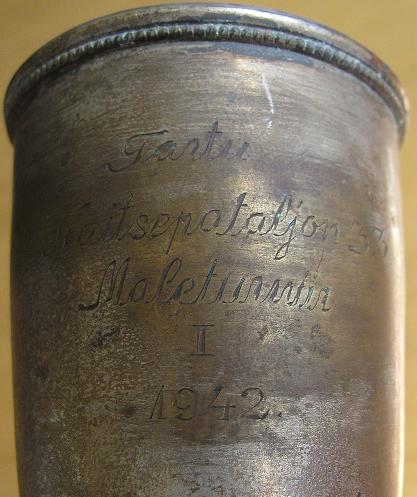 Tartu
Kaitsepataljon 33
Maleturniir
I
1942.